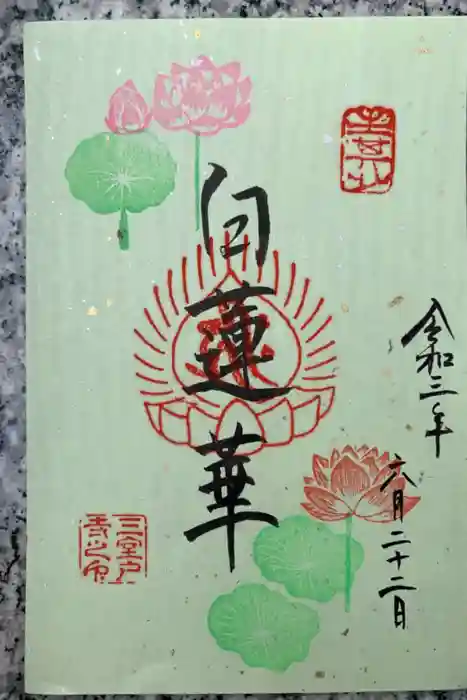 令和三年
六月二十二日
白蓮華
三室戸
寺之印